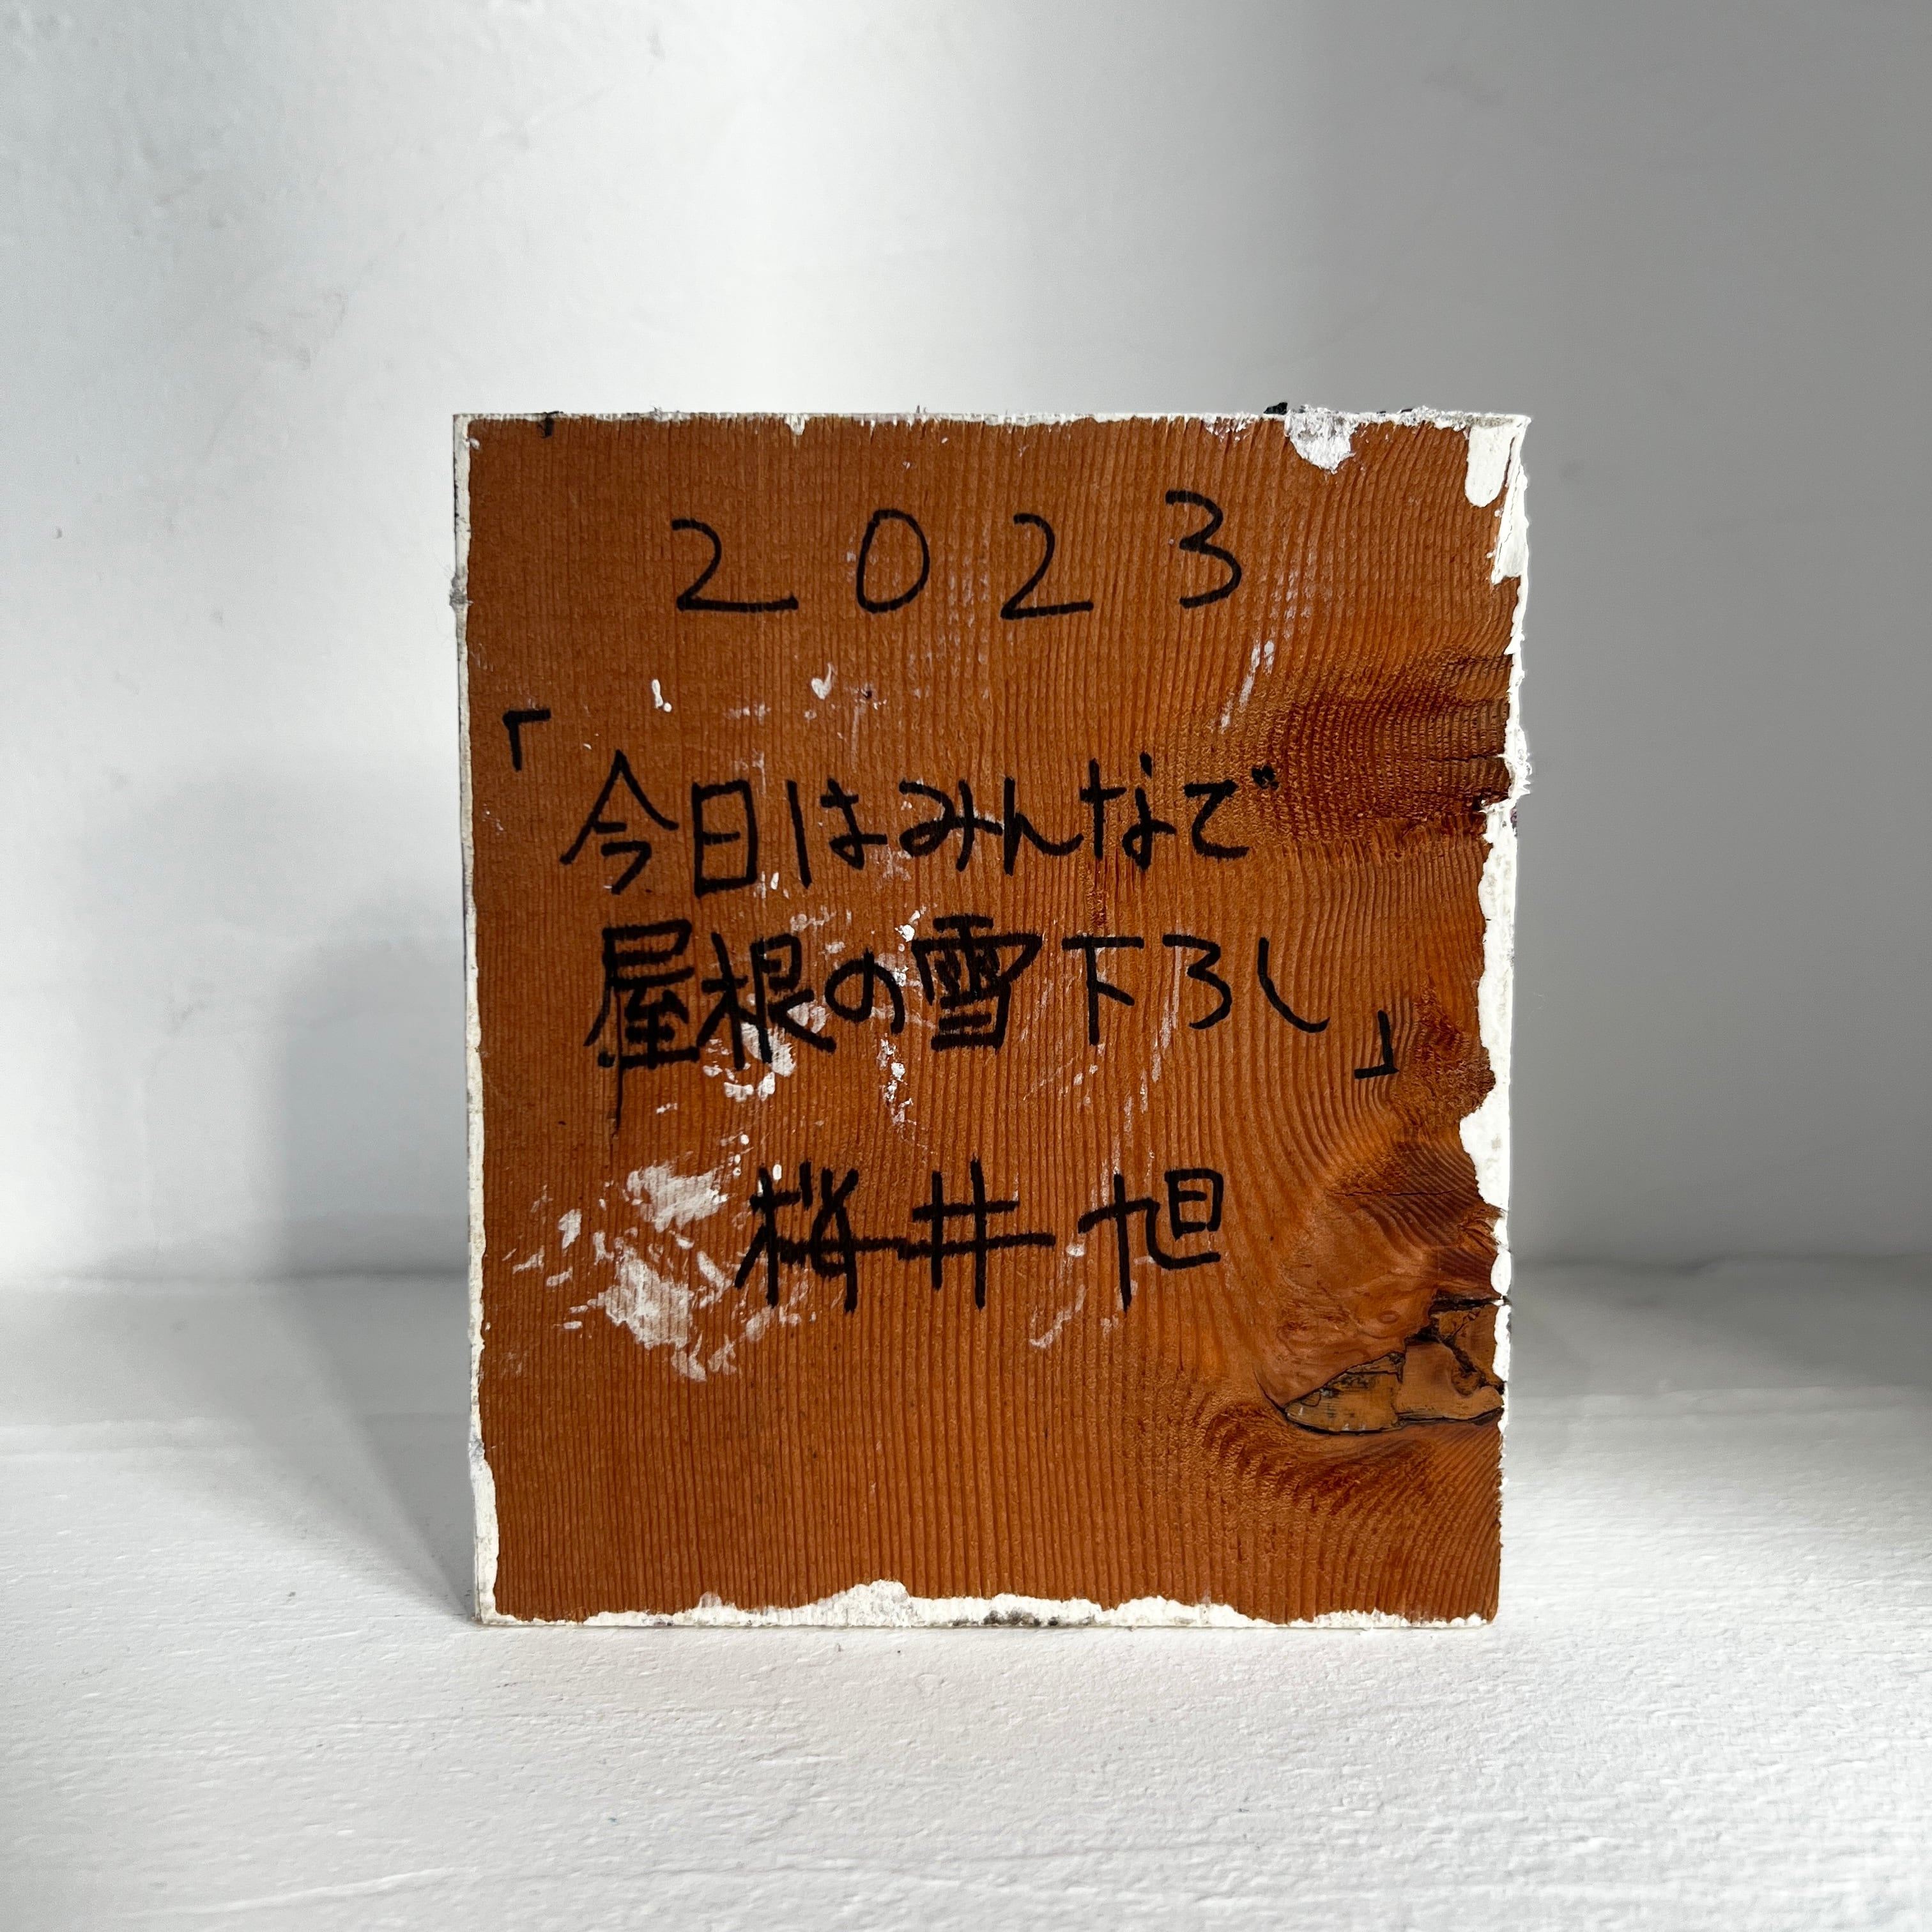 2023
「今日はみんなで
屋根の雪下ろし」
桜井旭